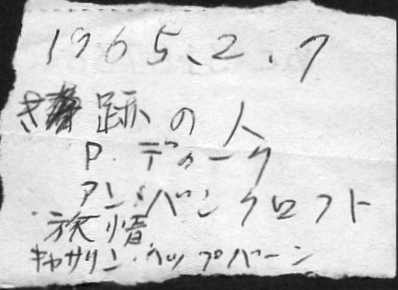 1965.2.7
き跡の人
P.デューク
アン・バンクロフト
旅情
キャサリン・ヘップバーン